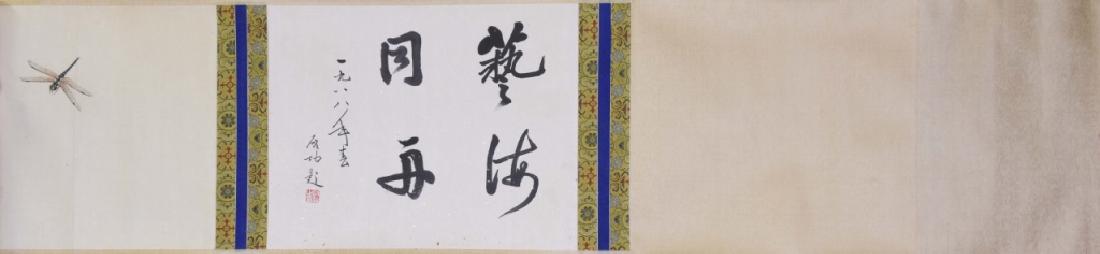 藝海
同舟
一九八八年春
启功题